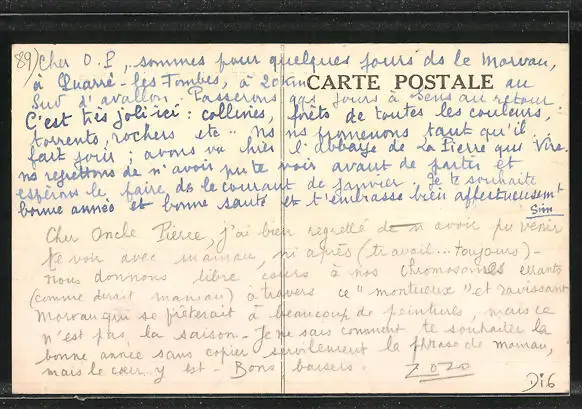 89) Cher O.P, sommes pour quelques jours ds le Morvan,
à Quarré-les Tombes, à 20 km au
CARTE POSTALE
Sud d'avallon. Passerons qqs jours à Sens au retour
C'est très joli ici : collines, forêts de toutes les couleurs,
torrents, rochers etc - Ns ns promenons tant qu'il
fait jour ; avons vu hier l'abbaye de La Pierre qui Vire.
ns regrettons de n'avoir pu te voir avant de partir et
espérons le faire ds le courant de janvier. Je te souhaite
bonne année et bonne santé et t'embrasse bien affectueusemt
Sim
Cher Oncle Pierre, j'ai bien regretté de n'avoir pu venir
te voir avec maman, ni après (travail... toujours) -
nous donnons libre cours à nos chromosomes errants
(comme dirait maman) à travers ce "montueux" et ravissant
Morvan qui se prêterait à beaucoup de peintures, mais ce
n'est pas la saison - Je ne sais comment te souhaiter la
bonne année sans copier servilement la phrase de maman,
mais le cœur y est - Bons baisers.
ZOZO
Di6